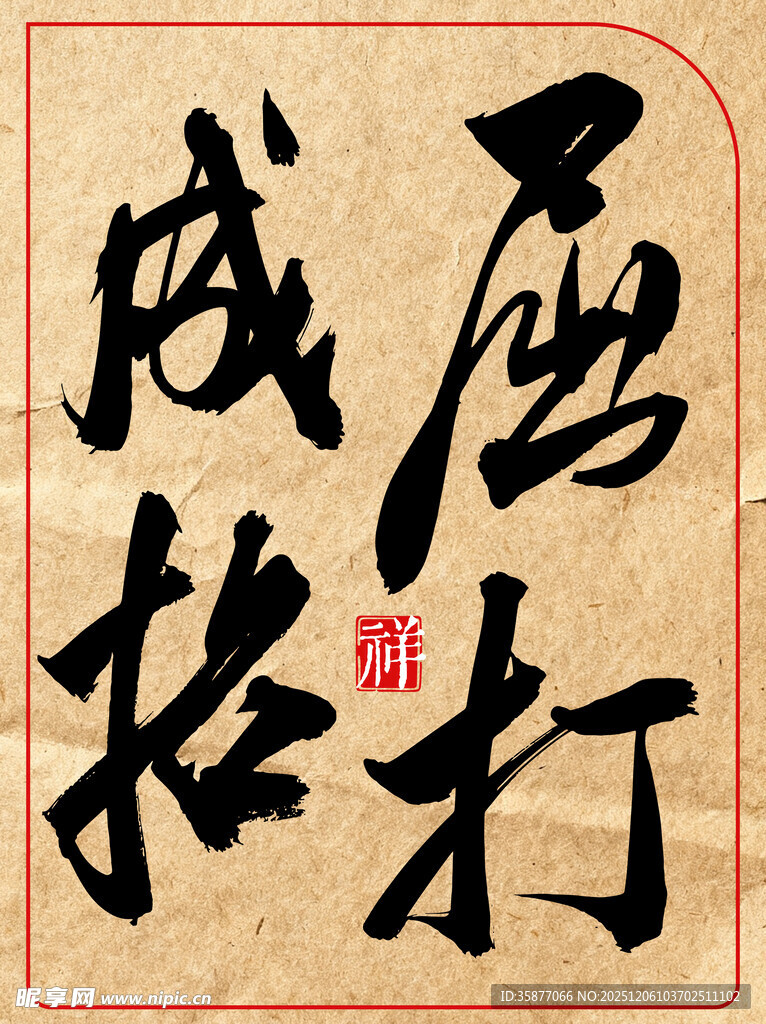 屈打
成招
祥
昵享网 www.nipic.cn
ID:35877066 NO:20251206103702511102